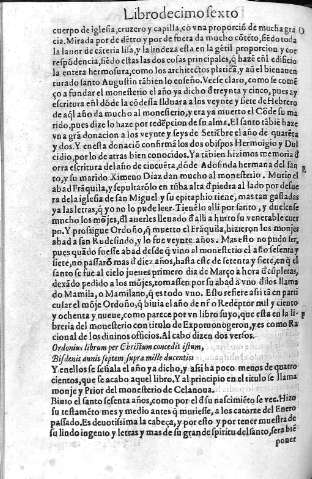 Libro decimo sexto
cuerpo de iglesia, cruzero y capilla, cō vna proporció de mucha gra
cia. Mirada por de dētro y por de fuera dà mucho cōtēto, siēdo toda
la lauor de cāteria lisa, y la lindeza està en la gētil proporcion y cor
respōdencia, siēdo estas las dos cosas principales, q̃ hazē enl edificio
la entera hermosura, como los architectos platicā, y aū el bienauen
turado santo Augustin tābien lo cōseño. Verse claro, como se come
ço a fundar el monesterio el año ya dicho d̃ treynta y cinco, pues ay
escritura enl dōde la cōdessa Ilduara a los veynte y siete de Hebrero
de aq̃l año dà mucho al monesterio, y era ya muerto el Cōde su ma
rido, pues dize lo haze por redēpcion de su alma. El santo tābiē haze
vna grā donacion a los veynte y seys de Setiēbre el año de quarēta
y dos. Y enesta donació confirmā los dos obispos Hermoigio y Dul
cidio, por lo de atras bien conocidos. Ya tābien hizimos memoria d̃
otra escritura del año de cincuēta, dōde Adosinda hermana del san
to, y su marido Ximeno Diaz dan mucho al monesterio. Murio el
abad Frāquila, y sepultarōlo en tūba alta d̃ piedra al lado por desue
ra dela iglesia de san Miguel y su epitaphio tiene; mas tan gastadas
ya las letras, q̃ yo no lo pude leer. Tienēlo alli por santo, y duelense
mucho los mōjes, d̃l auerles lleuado d̃ alli a hurto su venerable cuer
po. Y prosigue Ordoño, q̃ muerto el Frāquila, hizieron los monjes
abad a san Rudesindo, y lo fue veynte años. Mas esto no pudo ser,
pues quādo fuesse abad desde q̃ vino al monesterio el año sesenta y
siete, no passarō mas d̃ diez años, hasta este de setenta y siete, en q̃ el
santo se fue al cielo jueues primero dia de Março a hora d̃ cōpletas,
dexādo pedido a los mōjes, tomassen por su abad a vno d̃llos llama
do Mamila, o Mamilano, q̃ es todo vno. Esto refiere assi tā en parti
cular el mōje Ordoño, q̃ biuia el año de nr̃o Redēptor mil y ciento
y ochenta y nueue, como parece por vn libro suyo, que està en la li-
breria del monesterio con titulo de Expomonogeron, y es como Ra
cional de los diuinos oficios. Al cabo dizen dos versos.
Ordonius librum per Christum concedit istum,
Bis denis annis septem supra mille ducentis
Y enellos se señala el año ya dicho, y assi hà poco menos de quatro
cientos, que se acabo aquel libro. Y al principio en el titulo se llama
monje y Prior del monesterio de Celanoua.
Biuio el santo sesenta años, como por el d̃ su nascimiēto se vee. Hizo
su testamēto mes y medio antes q̃ muriesse, a los catorze del Enero
passado. Es deuotissima la cabeça, y por esto y por tener muestra de
su lindo ingenio y letras y mas de su gran de spiritu del santo, serà biē
ponet